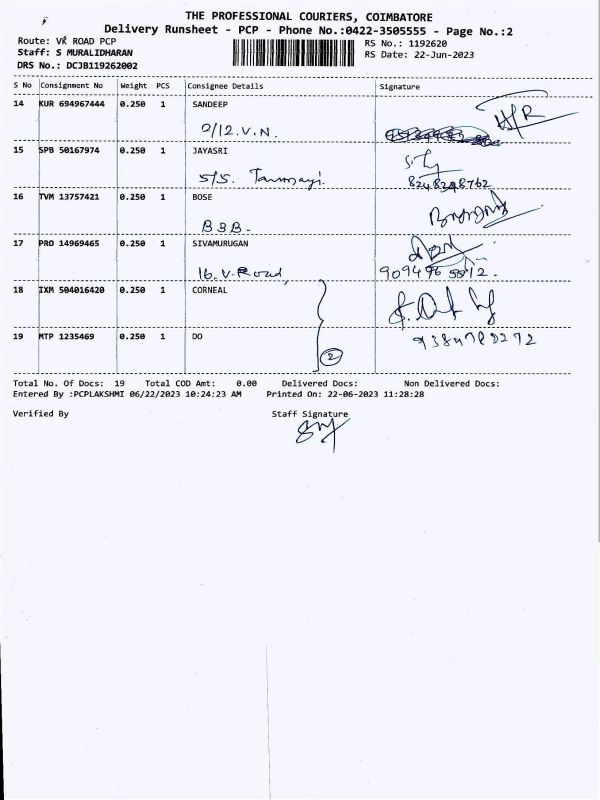 THE PROFESSIONAL COURIERS, COIMBATORE
Delivery Runsheet - PCP - Phone No.:0422-3505555 - Page No.:2
Route: VK ROAD PCP
Staff: S MURALIDHARAN
DRS No.: DCJB119262002
RS No.: 1192620
RS Date: 22-Jun-2023
S No Consignment No Weight PCS Consignee Details Signature
14 KUR 694967444 0.250 1 SANDEEP
0/12.V.N.
15 SPB 50167974 0.250 1 JAYASRI
5/5. Tanmayi.
8248248762
16 TVM 13757421 0.250 1 BOSE
B3B.
17 PRO 14969465 0.250 1 SIVAMURUGAN
16.V.Road,
18 IXM 504016420 0.250 1 CORNEAL
19 MTP 1235469 0.250 1 DO
2
Total No. Of Docs: 19 Total COD Amt: 0.00 Delivered Docs: Non Delivered Docs:
Entered By :PCPLAKSHMI 06/22/2023 10:24:23 AM Printed On: 22-06-2023 11:28:28
Verified By Staff Signature